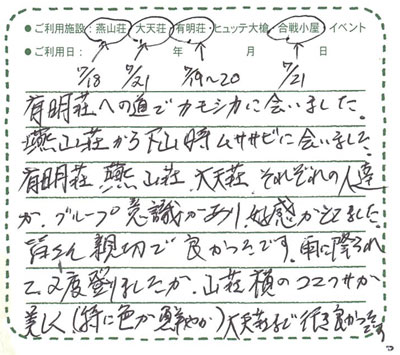 ●ご利用施設：燕山荘・大天荘・有明荘・ヒュッテ大槍・合戦小屋・イベント
●ご利用日： 年 月 日
7/18 7/21 7/19~20 7/21
有明荘への道でカモシカに会いました。
燕山荘から下山時ムササビに会いました。
有明荘、燕山荘、大天荘、それぞれの人達
が、グループ意識があり、好感がもてました。
皆さん親切で良かったです。雨に降られ
て2度登りましたが、山荘横のコマクサが
美人(特に色が鮮やか)大天荘まで行き良かった
です